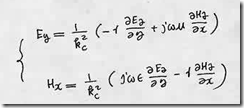 Ey = 1/kc² ( -γ ∂Ez/∂y + jωμ ∂Hz/∂x )
Hx = 1/kc² ( jωϵ ∂Ez/∂y - γ ∂Hz/∂x )